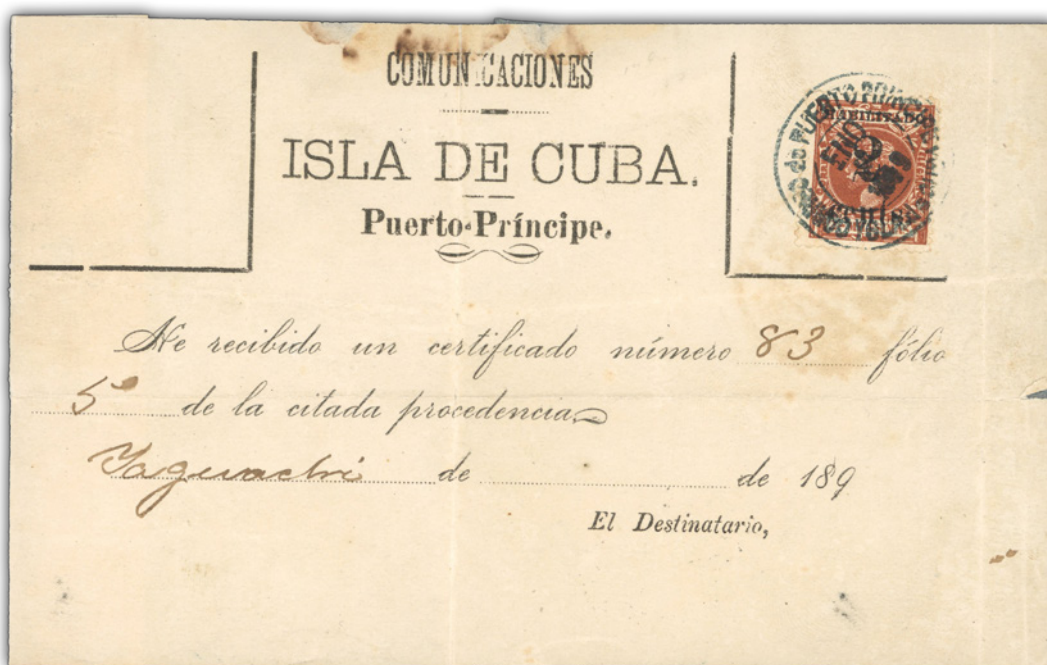 COMUNICACIONES
ISLA DE CUBA.
Puerto-Príncipe.
HABILITADO
ENO
He recibido un certificado número 83 fólio
5º de la citada procedencia
de de 189
El Destinatario,